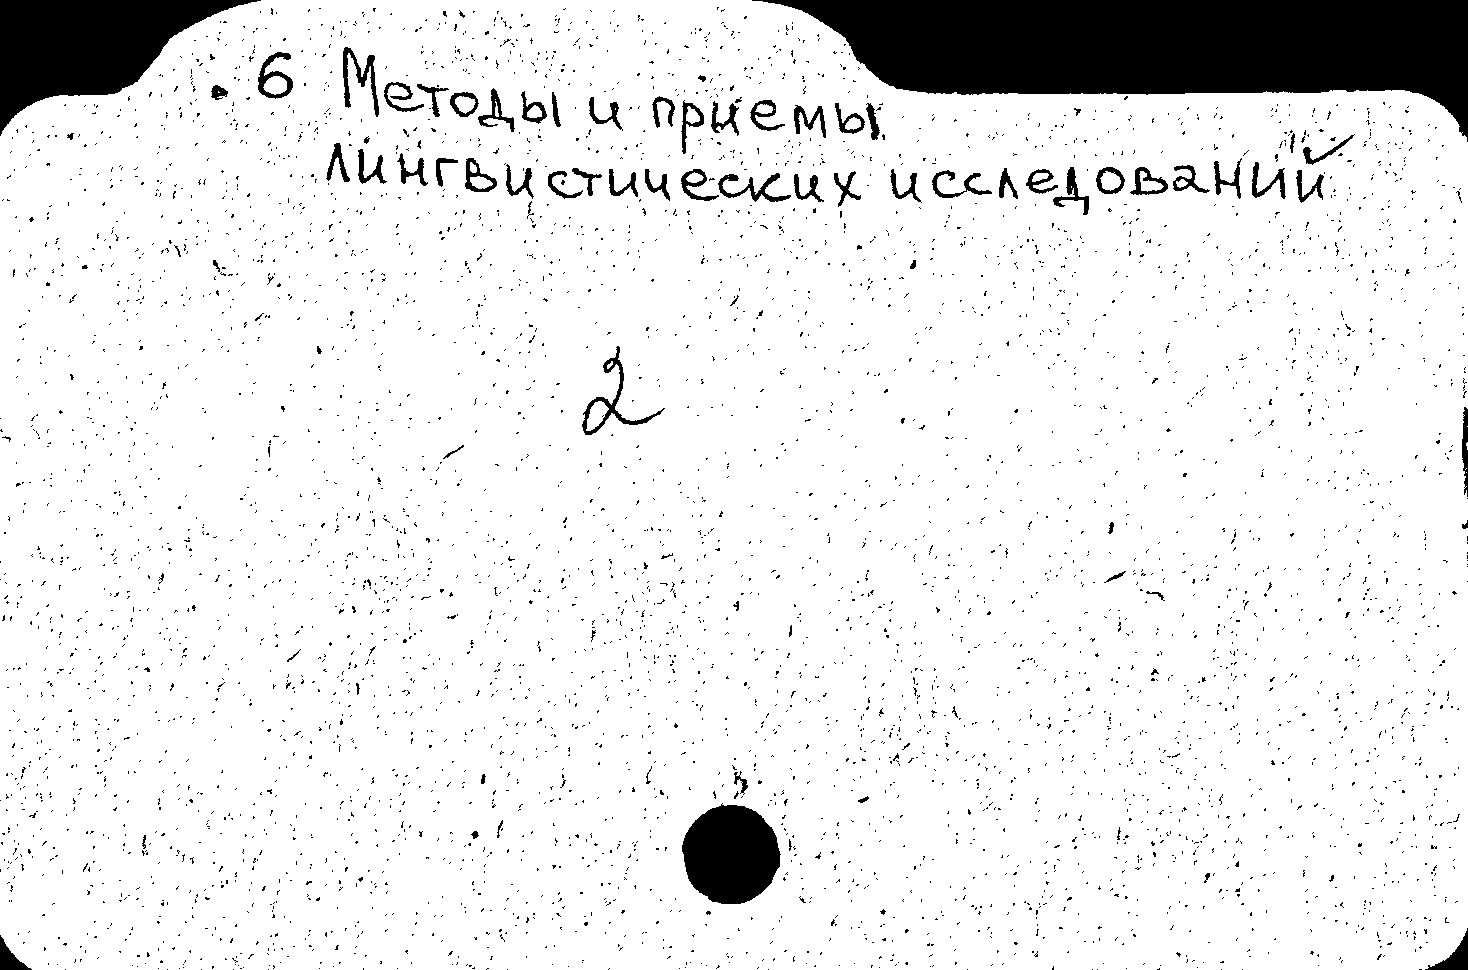 . 6 Методы и приемы
лингвистических исследований
2